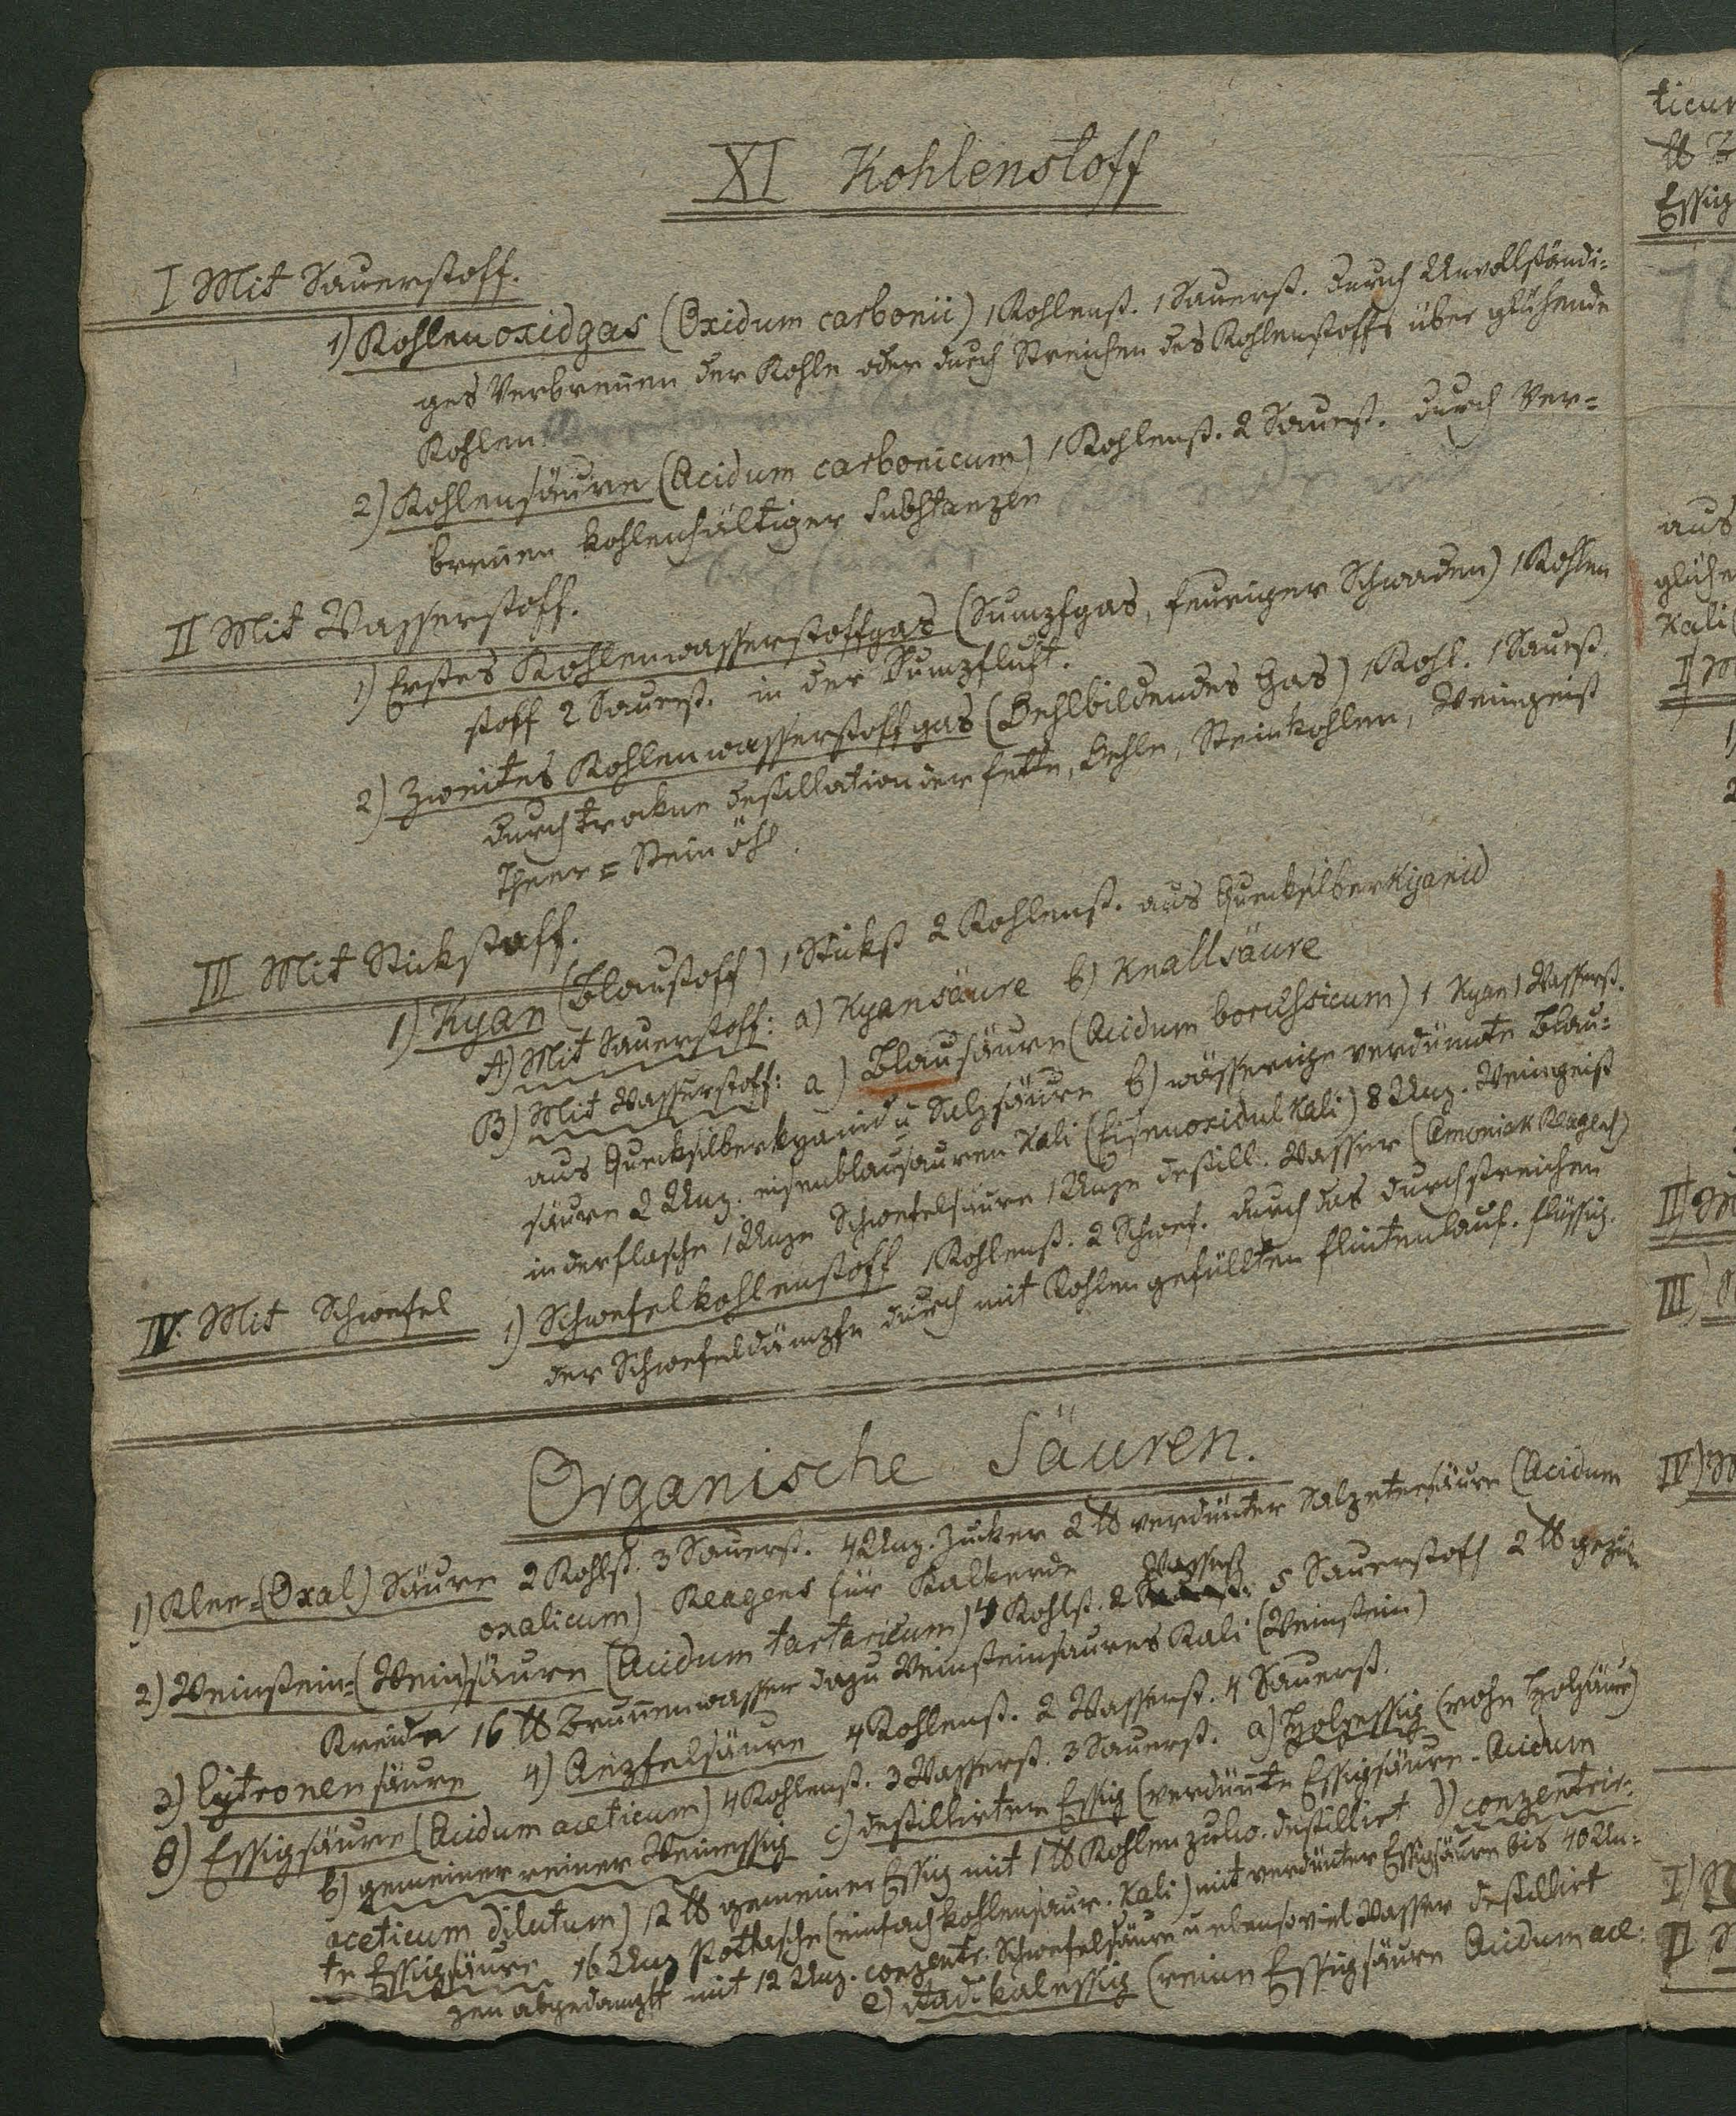 XI Kohlenstoff
I Mit Sauerstoff.
1) Kohlenoxidgas (Oxidum carbonii) 1 Kohlenst. 1 Sauerst. durch Unvollständi-
ges Verbrennen der Kohle oder durch Streichen des Kohlenstoffs über glühende
Kohlen
2) Kohlensäure (Acidum carbonicum) 1 Kohlenst. 2 Sauerst. durch Ver-
brennen kohlenhältiger Substanzen
II Mit Wasserstoff.
1) Erstes Kohlenwasserstoffgas (Sumpfgas, feuriger Schwaden) 1 Kohlen
stoff 2 Sauerst. in der Sumpfluft.
2) Zweites Kohlenwasserstoffgas (Oehlbildendes Gas) 1 Kohl. 1 Sauerst.
durch trockne Destillation der Fette, Oehle, Steinkohlen, Weingeist
Theer = Steinöhl.
III Mit Stickstoff.
1) Kyan (Blaustoff) 1 Stickst 2 Kohlenst. aus Quecksilberkyanid
A) Mit Sauerstoff: a) Kyansäure b) Knallsäure
B) Mit Wasserstoff: a) Blausäure (Acidum borussicum) 1 Kyan 1 Wasserst.
aus Quecksilberkyanid u Salzsäure b) wässerige verdünnte Blau-
säure 2 Unz. eisenblausauren Kali (Eisenoxidul Kali) 8 Unz. Weingeist
in der Flasche 1 Unze Schwefelsäure 1 Unze destill. Wasser (Amoniak Reagens)
IV. Mit Schwefel
1) Schwefelkohlenstoff 1 Kohlenst. 2 Schwef. durch das Durchstreichen
der Schwefeldämpfe durch mit Kohlen gefüllten Flintenlauf. flüssig.
Organische Säuren.
1) Klee-(Oxal) Säure 2 Kohlst. 3 Sauerst. 4 Unz. Zucker 2 ℔ verdünter Salpetersäure (Acidum
oxalicum) Reagens für Kalkerde
2) Weinstein-(Wein)säure (Acidum tartaricum) 4 Kohlst. 2 Wasserst 5 Sauerstoff 2 ℔
Kreide 16 ℔ Brunnenwasser dazu Weinsteinsaures Kali (Weinstein)
3) Cytronensäure 4) Aepfelsäure 4 Kohlenst. 2 Wasserst. 4 Sauerst.
8) Essigsäure (Acidum aceticum) 4 Kohlenst. 3 Wasserst. 3 Sauerst. a) Holzessig (rohe Holzsäure)
b) gemeiner reiner Weinessig c) destillirter Essig (verdünnte Essigsäure - Acidum
aceticum dilutum) 12 ℔ gemeiner Essig mit 1 ℔ Kohlenpulv. destillirt d) conzentrir-
te Essigsäure 16 Unz Pottasche (einfach kohlensaur. Kali) mit verdünter Essigsäure bis 40 Un-
zen abgedampft mit 12 Unz. conzentr. Schwefelsäure u ebensoviel Wasser destillirt
e) Radikalessig (reine Essigsäure Acidum ace-